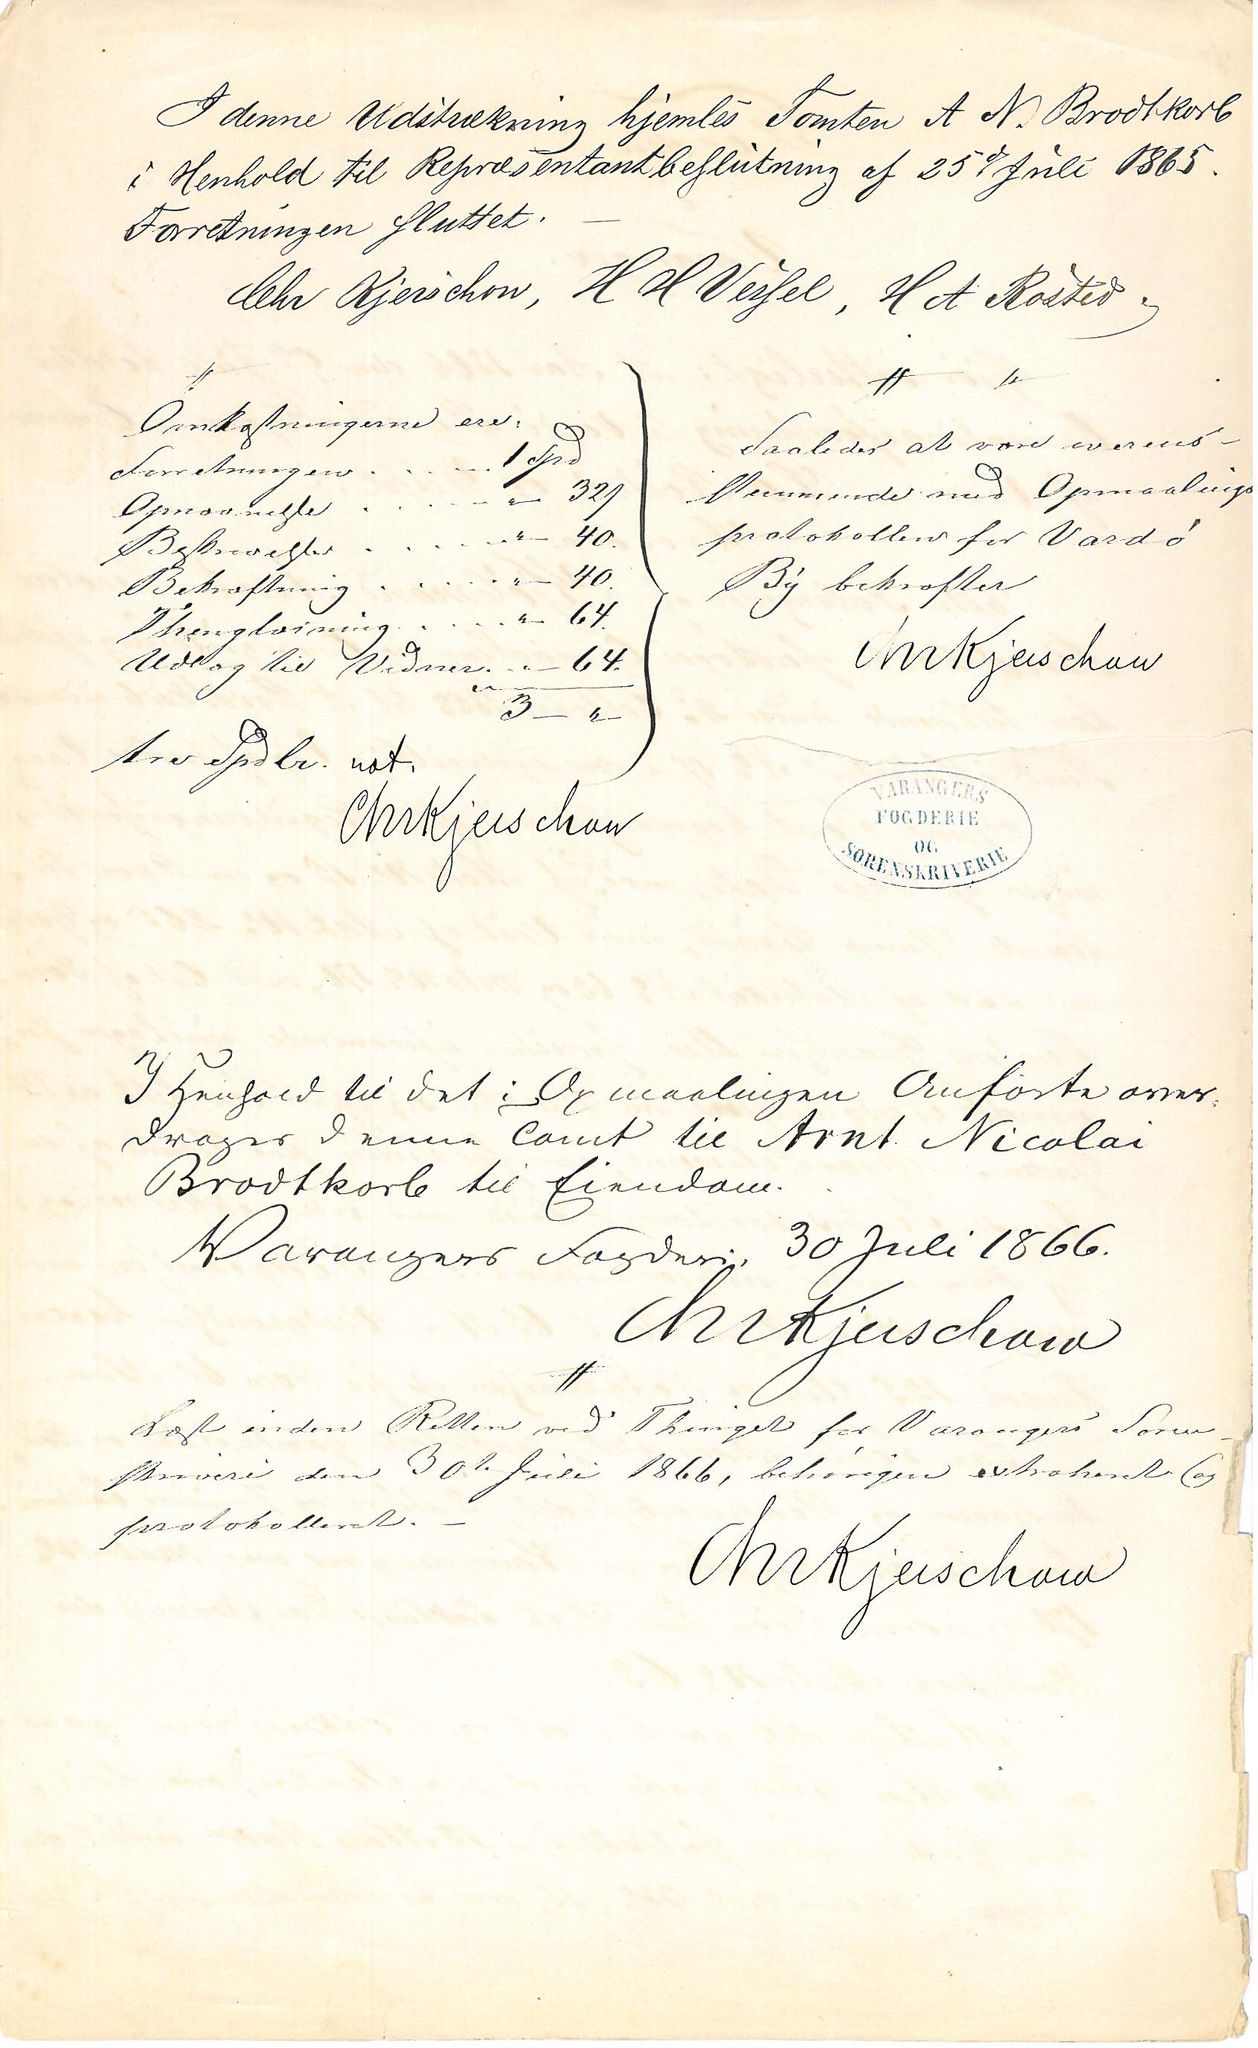 I denne Udstrækning hjemles Tomten A N. Brodtkorb
i Henhold til Repræsentantbeslutning af 25d Juli 1865.
Forretningen sluttet. —
Chr Kjerschow, H H Veisel, H A Rosted
Omkostningerne ere:
Forretningen . . . . 1 Spd
. . . . " — 32
. . . . " — 40.
Bekræftning . . . . " — 40.
Thinglæsning . . . . " — 64.
Udlag til Vidner . " — 64.
3 — "
tre Spdlr. not.
ChrKjerschow
Saaledes at være overens-
stemmende med Opmaalings
protokollen for Vardö
By bekræfter
ChrKjerschow
VARANGERS
FOGDERIE
OG
SORENSKRIVERIE
I Henhold til det i Opmaalingen Anførte over-
drages denne Tomt til Arnt Nicolai
Brodtkorb til Eiendom.
Varangers Fogderi, 30 Juli 1866.
ChrKjerschow
Læst inden Retten ved Thinget for Varangers Soren-
skriveri den 30te Juli 1866, behørigen extraheret og
protokolleret. —
ChrKjerschow